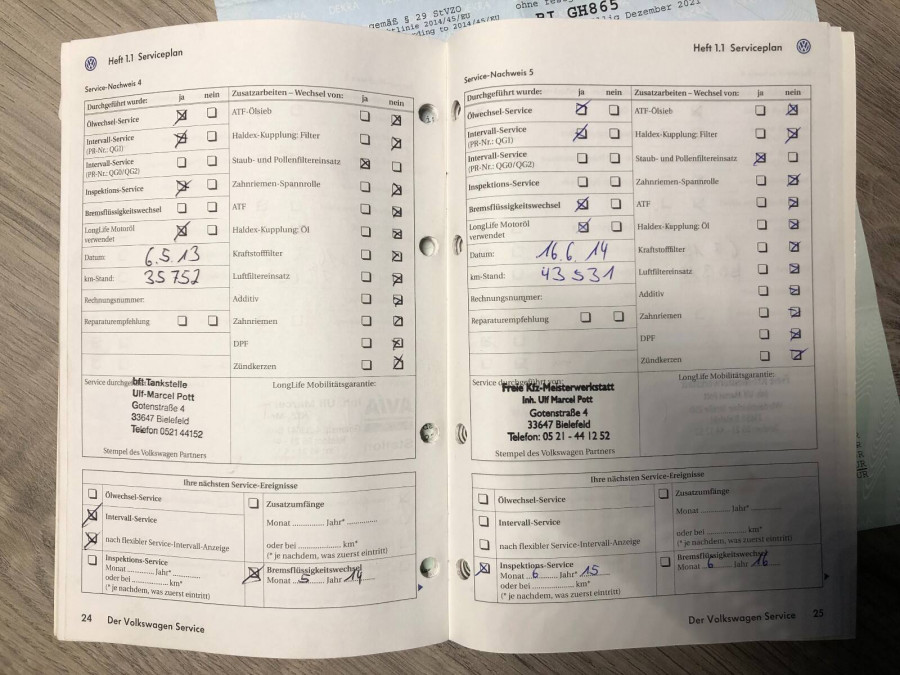 gemäß § 29 StVZO
2014/45/EU
to 2014/45/EU
GH865
Dezember 2021
Heft 1.1 Serviceplan
Service-Nachweis 4
Durchgeführt wurde: ja nein
Ölwechsel-Service
Intervall-Service
(PR-Nr.: QG1)
Intervall-Service
(PR-Nr.: QG0/QG2)
Inspektions-Service
Bremsflüssigkeitswechsel
LongLife Motoröl
verwendet
Datum: 6.5.13
km-Stand: 35752
Rechnungsnummer:
Reparaturempfehlung
Zusatzarbeiten – Wechsel von: ja nein
ATF-Ölsieb
Haldex-Kupplung: Filter
Staub- und Pollenfiltereinsatz
Zahnriemen-Spannrolle
ATF
Haldex-Kupplung: Öl
Kraftstofffilter
Luftfiltereinsatz
Additiv
Zahnriemen
DPF
Zündkerzen
Service
bft Tankstelle
Ulf-Marcel Pott
Gotenstraße 4
33647 Bielefeld
Telefon 0521 44152
Stempel des Volkswagen Partners
LongLife Mobilitätsgarantie:
Ihre nächsten Service-Ereignisse
Ölwechsel-Service
Intervall-Service
nach flexibler Service-Intervall-Anzeige
Inspektions-Service
Monat ............ Jahr* ............
oder bei ............ km*
(* je nachdem, was zuerst eintritt)
Zusatzumfänge
Monat ............ Jahr* ............
oder bei ............ km*
(* je nachdem, was zuerst eintritt)
Bremsflüssigkeitswechsel
Monat 5 Jahr 14
24 Der Volkswagen Service
Heft 1.1 Serviceplan
Service-Nachweis 5
Durchgeführt wurde: ja nein
Ölwechsel-Service
Intervall-Service
(PR-Nr.: QG1)
Intervall-Service
(PR-Nr.: QG0/QG2)
Inspektions-Service
Bremsflüssigkeitswechsel
LongLife Motoröl
verwendet
Datum: 16.6.14
km-Stand: 43531
Rechnungsnummer:
Reparaturempfehlung
Zusatzarbeiten – Wechsel von: ja nein
ATF-Ölsieb
Haldex-Kupplung: Filter
Staub- und Pollenfiltereinsatz
Zahnriemen-Spannrolle
ATF
Haldex-Kupplung: Öl
Kraftstofffilter
Luftfiltereinsatz
Additiv
Zahnriemen
DPF
Zündkerzen
Service durchgeführt von:
Freie Kfz-Meisterwerkstatt
Inh. Ulf Marcel Pott
Gotenstraße 4
33647 Bielefeld
Telefon: 05 21 - 44 12 52
Stempel des Volkswagen Partners
LongLife Mobilitätsgarantie:
Ihre nächsten Service-Ereignisse
Ölwechsel-Service
Intervall-Service
nach flexibler Service-Intervall-Anzeige
Inspektions-Service
Monat 6 Jahr* 15
oder bei ............ km*
(* je nachdem, was zuerst eintritt)
Zusatzumfänge
Monat ............ Jahr* ............
oder bei ............ km*
(* je nachdem, was zuerst eintritt)
Bremsflüssigkeitswechsel
Monat 6 Jahr 16
Der Volkswagen Service 25